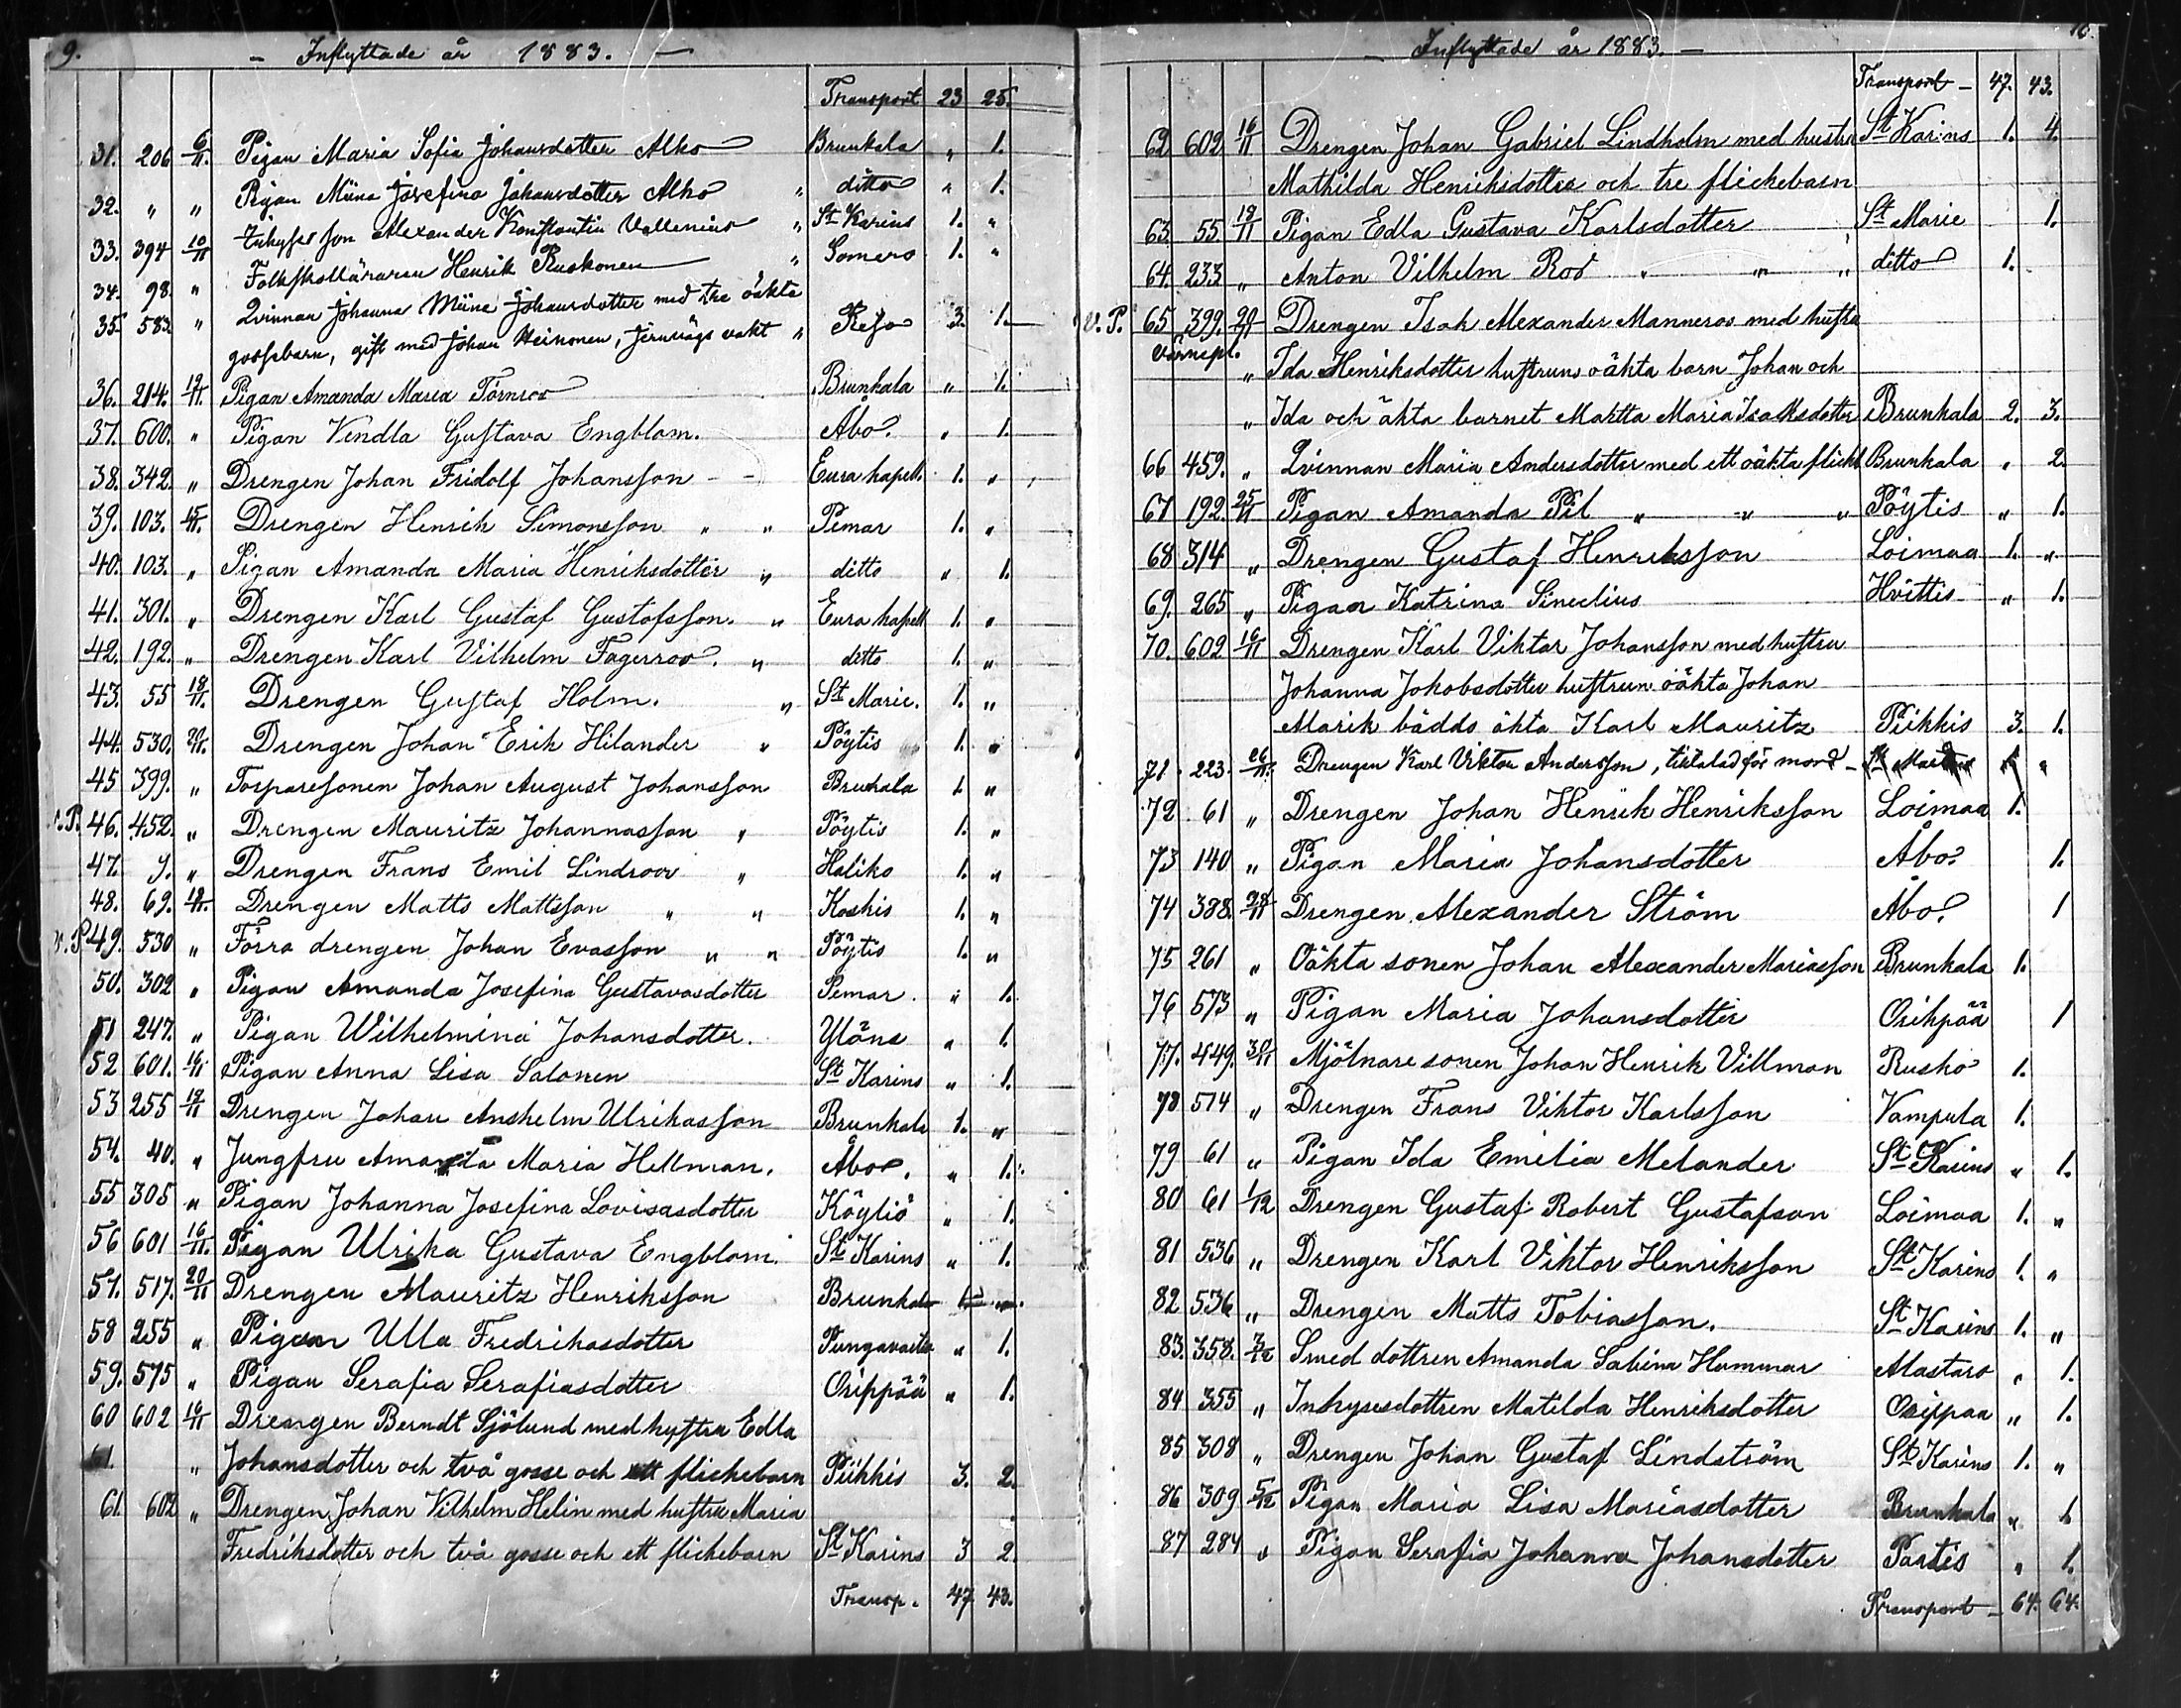 9.
- Inflyttade år 1883. -
Transport 23 25.
31. 206 6/11. Pigan Maria Sofia Johansdotter Alho Brunkala " 1.
32. " " Pigan Miina Josefina Johansdotter Alho " ditto " 1.
33. 394 10/11 Inhyses son Alexander Konstantin Vallenius " St Karins 1. "
34. 98. " Folkskolläraren Henrik Ruskonen " Somero 1. "
35. 583 " Qvinnan Johanna Miina Johansdotter med tre oäkta
gossebarn, gift med Johan Heinonen, Jernvägs vakt " Reso 3. 1.
36. 214. 12/11. Pigan Amanda Maria Törnroo Brunkala " 1.
37. 600. " Pigan Vendla Gustava Engblom. Åbo. " 1.
38. 342. " Drengen Johan Fridolf Johansson - - Eura kapell. 1. "
39. 103. 15/11. Drengen Henrik Simonsson " " Pemar 1. "
40. 103. " Pigan Amanda Maria Henriksdotter " ditto " 1.
41. 301. " Drengen Karl Gustaf Gustafsson. " Eura kapell 1. "
42. 192. " Drengen Karl Vilhelm Fagerroo. " ditto 1. "
43. 55 18/11. Drengen Gustaf Holm. " St Marie. 1. "
44. 530. 20/11. Drengen Johan Erik Hilander " Pöytis 1. "
45 399. " Torparesonen Johan August Johansson Brunkala 1 "
v.P. 46. 452. " Drengen Mauritz Johannasson " Pöytis 1. "
47. 9. " Drengen Frans Emil Lindroos " Haliko 1. "
48. 69. 18/11. Drengen Matts Mattsson " " Koskis 1. "
v.P 49. 530 " Förra drengen Johan Evasson " " Pöytis 1. "
50. 302 " Pigan Amanda Josefina Gustavasdotter Pemar. " 1.
51 247. " Pigan Wilhelmina Johansdotter. Yläne " 1.
52 601. 16/11 Pigan Anna Lisa Salonen St Karins " 1.
53 255 19/11 Drengen Johan Anshelm Ulrikasson Brunkala 1. "
54. 40. " Jungfru Amanda Maria Hellman. Åbo. " 1.
55 305 " Pigan Johanna Josefina Lovisasdotter Köyliö " 1.
56 601 16/11. Pigan Ulrika Gustava Engblom. St Karins " 1.
57. 517. 20/11 Drengen Mauritz Henriksson Brunkala 1. "
58 255 " Pigan Ulla Fredrikasdotter Pungavaito " 1.
59. 575 " Pigan Serafia Serafiasdotter Orippää " 1.
60 602 16/11 Drengen Berndt Sjölund med hustru Edla
61. " Johansdotter och två gosse och ett flickebarn Piikkis 3. 2.
61. 602 " Drengen Johan Vilhelm Helin med hustru Maria
Fredriksdotter och två gosse och ett flickebarn St Karins 3 2
Transp. 47 43.
10.
- Inflyttade år 1883 -
Transport - 47. 43.
62 602 16/11 Drengen Johan Gabriel Lindholm med hustru St Karins 1. 4.
Mathilda Henriksdotter och tre flickebarn
63. 55 18/11 Pigan Edla Gustava Karlsdotter St Marie 1.
64. 233 " Anton Vilhelm Roo " " " ditto 1.
v.P. 65 399. 20/11 Drengen Isak Alexander Manneroo med hustru
värnepl. " Ida Henriksdotter hustruns oäkta barn Johan och
" Ida och äkta barnet Martta Maria Isaksdotter Brunkala 2. 3.
66 459. " Qvinnan Maria Andersdotter med ett oäkta flickb Brunkala " 2.
67 192. 25/11 Pigan Amanda Pil " " " Pöytis " 1.
68 314 " Drengen Gustaf Henriksson Loimaa 1. "
69. 265 " Pigan Katrina Sinelius Hvittis " 1.
70. 602 16/11 Drengen Karl Viktor Johansson med hustru
Johanna Jakobsdotter hustrun oäkta Johan
Marik bådds äkta Karl Mauritz Piikkis 3. 1.
71. 223. 26/11. Drengen Karl Viktor Andersson, tiltalad för mord - St Martens 1 "
72 61 " Drengen Johan Henrik Henriksson Loimaa 1.
73 140 " Pigan Maria Johansdotter Åbo. 1.
74 388. 28/11 Drengen Alexander Ström Åbo. 1
75 261 " Oäkta sonen Johan Alexander Mariasson Brunkala 1.
76 573 " Pigan Maria Johansdotter Orihpää 1
77. 449. 30/11 Mjölnare sonen Johan Henrik Villman Rusko 1.
78 514 " Drengen Frans Viktor Karlsson Vampula 1.
79 61 " Pigan Ida Emilia Melander St Karins " 1.
80 61 1/12 Drengen Gustaf Robert Gustafson Loimaa 1. "
81 536 " Drengen Karl Viktor Henriksson St Karins 1. "
82 536 " Drengen Matts Tobiasson. St Karins 1. "
83. 358. 3/12 Smed dottren Amanda Sabina Hammar Alastaro " 1.
84 355 " Inhysesdottren Matilda Henriksdotter Orippaa " 1.
85 308 " Drengen Johan Gustaf Lindström St Karins 1. "
86 309 5/12 Pigan Maria Lisa Mariasdotter Brunkala " 1.
87 284 " Pigan Serafia Johanna Johansdotter Partis " 1.
Transport - 64. 64.